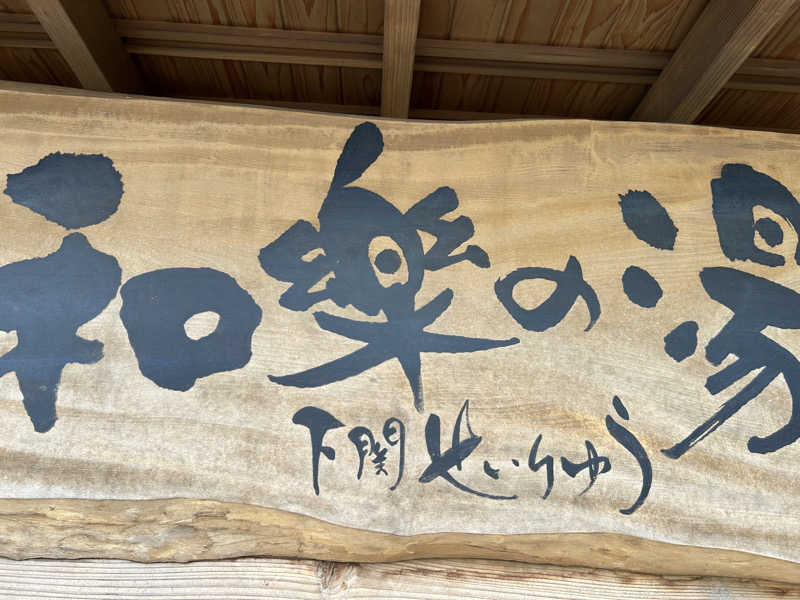 和樂の湯
下関せいりゅう